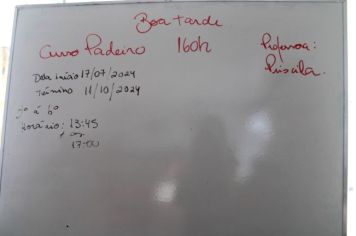 Boa tarde
Curso Padeiro 160h
Professora:
Priscila.
Data início 17/07/2024
Término 11/10/2024
2ª á 6ª
Horário: 13:45
as
17:00